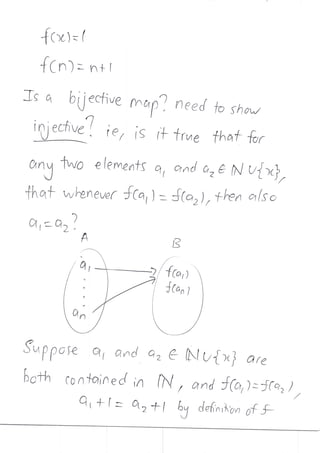 f(x)=1
f(n)=n+1
Is a bijective map? need to show
injective? ie, is it true that for
any two elements a₁ and a₂ ∈ ℕ∪{x},
that whenever f(a₁)=f(a₂), then also
a₁=a₂?
A B
a₁ f(a₁)
f(aₙ)
aₙ
Suppose a₁ and a₂ ∈ ℕ∪{x} are
both contained in ℕ, and f(a₁)=f(a₂),
a₁+1=a₂+1 by definition of f